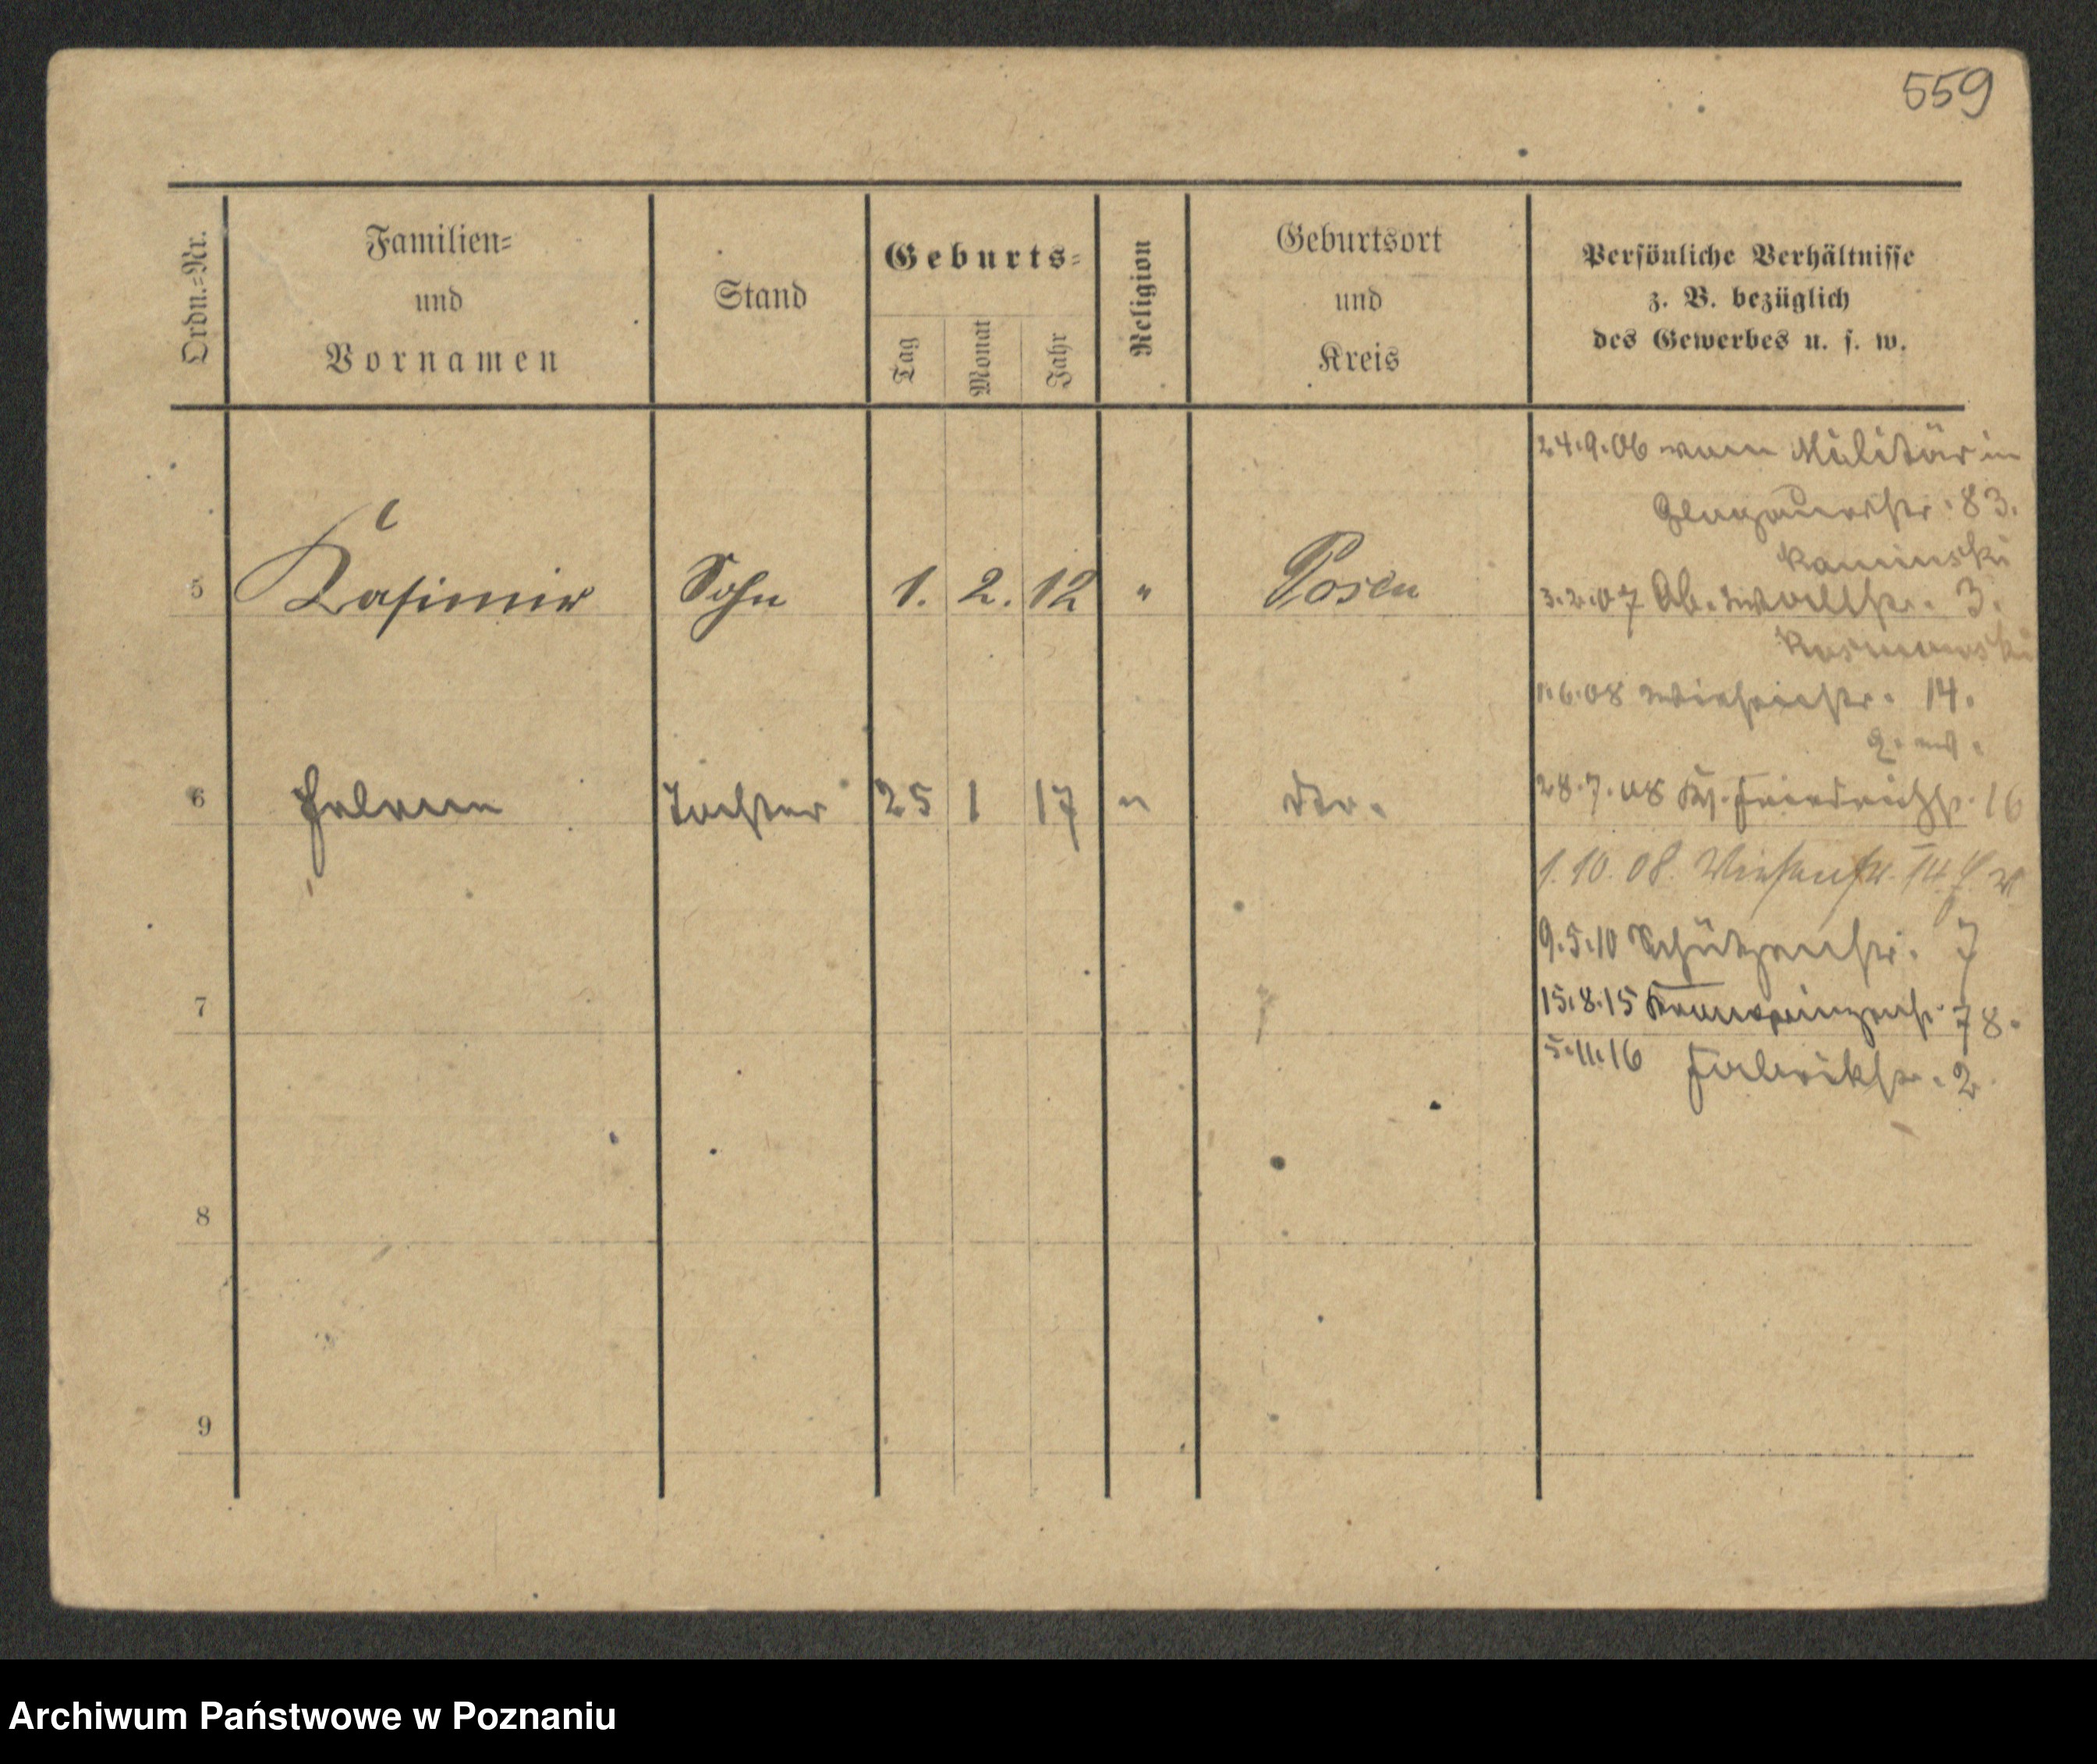 559
Ordn.=Nr.
Familien=
und
Vornamen
Stand
Geburts=
Tag
Monat
Jahr
Religion
Geburtsort
und
Kreis
Persönliche Verhältnisse
z. B. bezüglich
des Gewerbes u. s. w.
24.9.06 vom Militär in
Glogauerstr. 83.
Kaminski
5 Kasimir Sohn 1. 2. 12 " Posen
3.2.07 3.
1.6.08 14.
6 Helene Tochter 25 1 17 " dto.
28.7.08 Friedrichstr. 16
1.10.08. Wiesenstr. 14
9.5.10 Schützenstr. 7
7
15.8.15 Kronprinzenstr. 78.
5.11.16 Fabrikstr. 2
8
9
Archiwum Państwowe w Poznaniu